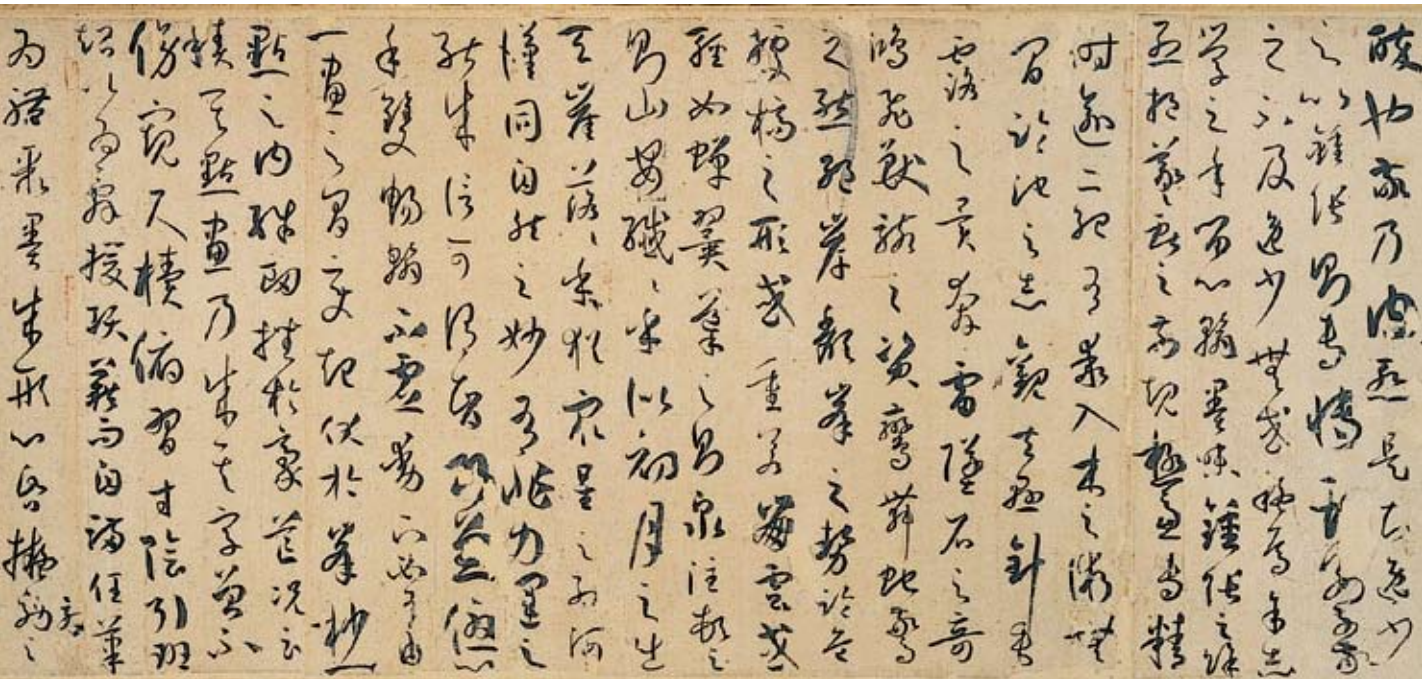 醉也敬乃內慙是知逸少
之比鍾張則專博斯別子敬
之不及逸少無或疑焉余志
學之年留心翰墨味鍾張之餘
烈挹羲獻之前規極慮專精
時逾二紀有乖入木之術無
間臨池之志觀夫懸針垂
露之異奔雷墜石之奇
鴻飛獸駭之資鸞舞蛇驚
之態絕岸頹峯之勢臨危
據槁之形或重若崩雲或
輕如蟬翼導之則泉注頓之
則山安纖〻乎似初月之出
天崖落〻乎猶眾星之列河
漢同自然之妙有非力運之
能成信可謂智巧兼優心
手雙暢翰不虛動下必有由
一畫之間變起伏於峯杪一
點之內殊衄挫於豪芒況云
積其點畫乃成其字曾不
傍窺尺牘俯習寸陰引班
超以為辭援項籍而自滿任筆
為體聚墨成形心昏擬效之
方